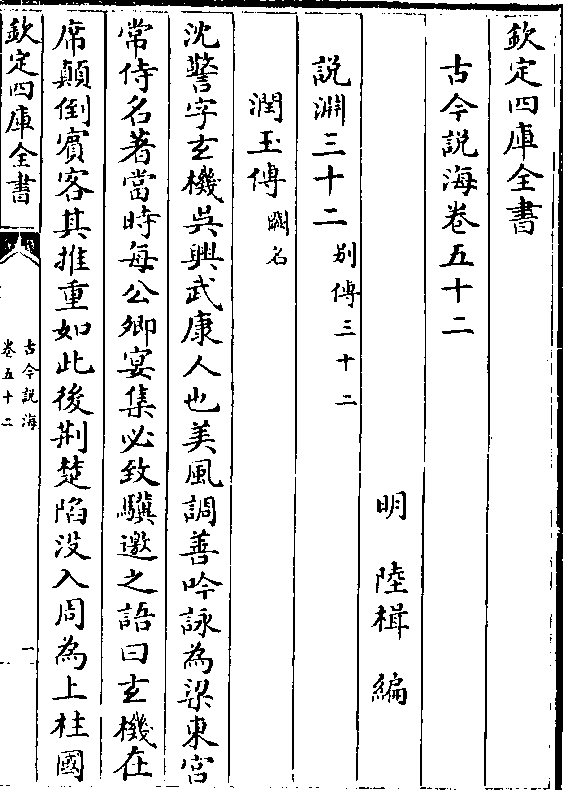 欽定四庫全書
古今説海卷五十二
明 陸楫 編
説淵三十二 别傳三十二
潤玉傳 闕名
沈警字玄機吳興武康人也美風調善吟詠為梁東宫
常侍名著當時每公卿宴集必致騏邀之語曰玄機在
席顛倒賓客其推重如此後荆楚陷没入周為上柱國
欽定四庫全書
古今説海
卷五十二
一